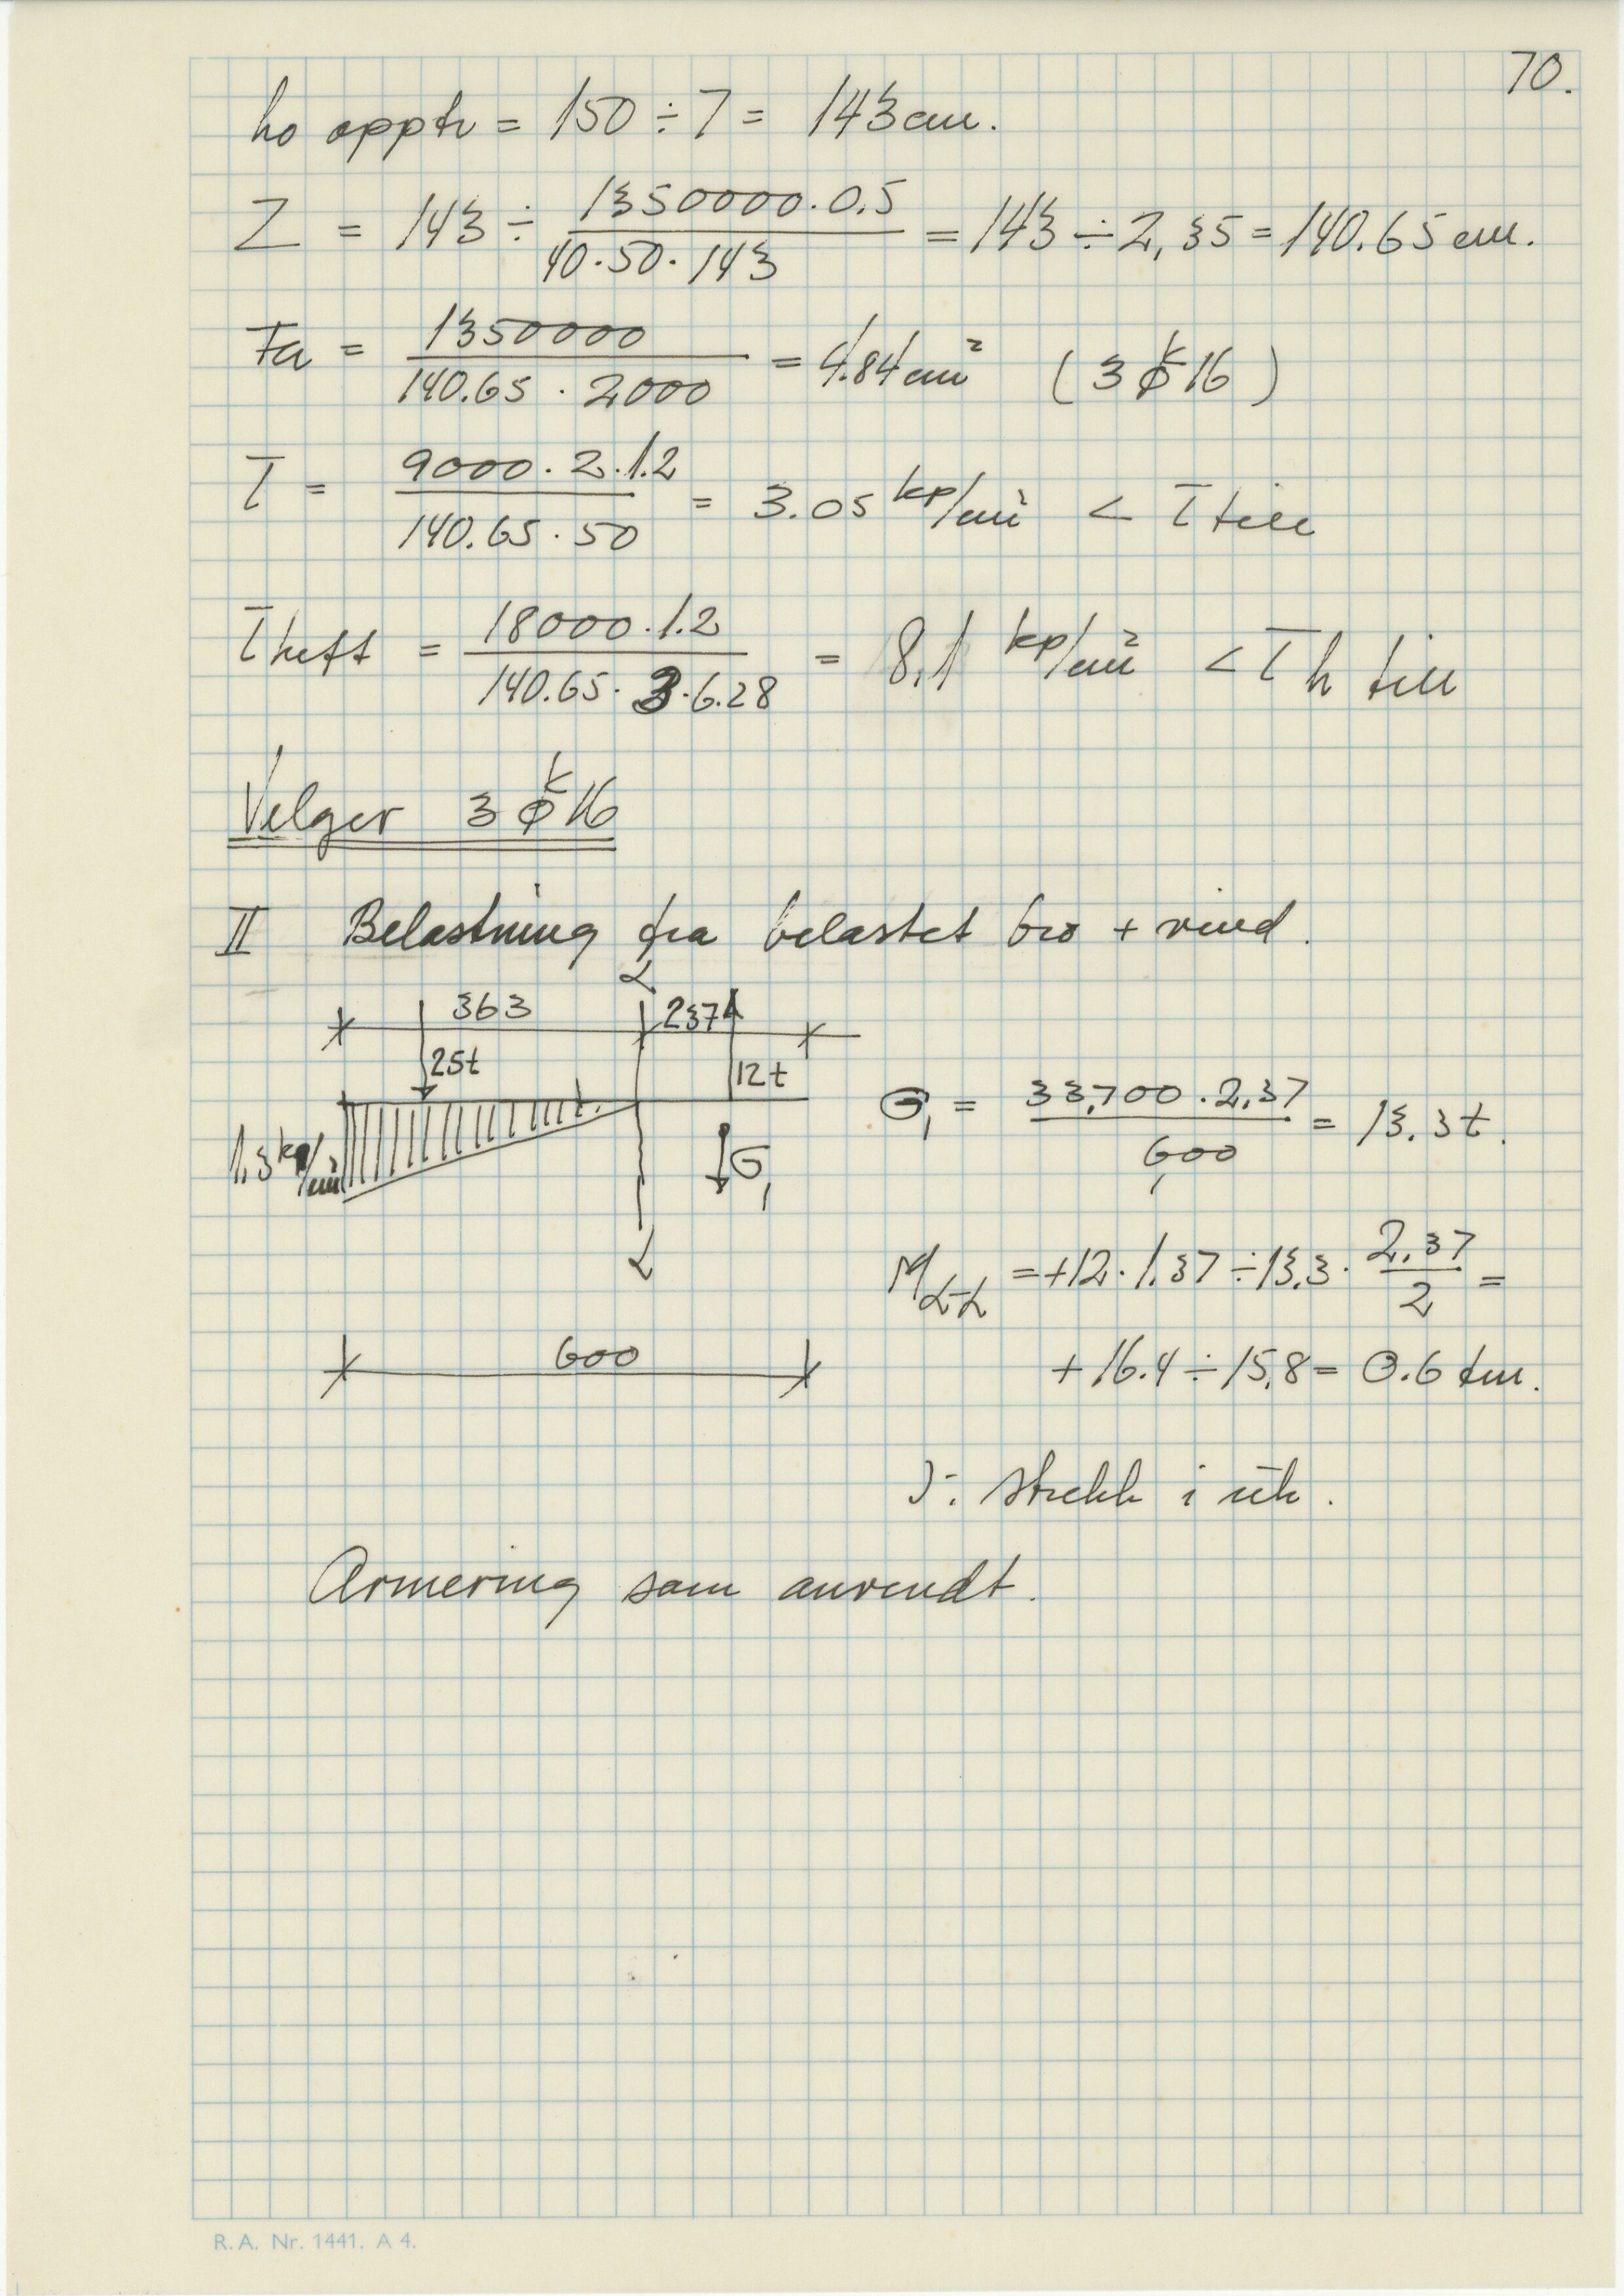 70.
ho opptr = 150 ÷ 7 = 143 cm.
Z = 143 ÷ 1350000 · 0.5 / 40 · 50 · 143 = 143 ÷ 2,35 = 140.65 cm.
Fa = 1350000 / 140.65 · 2000 = 4.84 cm² (3 ϕᵏ 16)
τ = 9000 · 2 · 1.2 / 140.65 · 50 = 3.05 kp/cm² < τ till
τ heft = 18000 · 1.2 / 140.65 · 3 · 6.28 = 8,1 kp/cm² < τ h till
Velger 3 ϕᵏ 16
II Belastning fra belastet bro + vind.
363 237
25t 12t
1,3 kp/cm² G₁
G₁ = 33,700 · 2,37 / 6,00 = 13.3 t.
M α-α = +12 · 1.37 ÷ 13,3 · 2,37 / 2 =
+ 16.4 ÷ 15,8 = 0.6 tm.
600
ɔ: strekk i uk.
Armering som anvendt.
R.A. Nr. 1441. A 4.